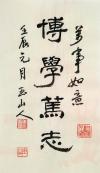 萬事如意
博學篤志
壬辰元月
山人